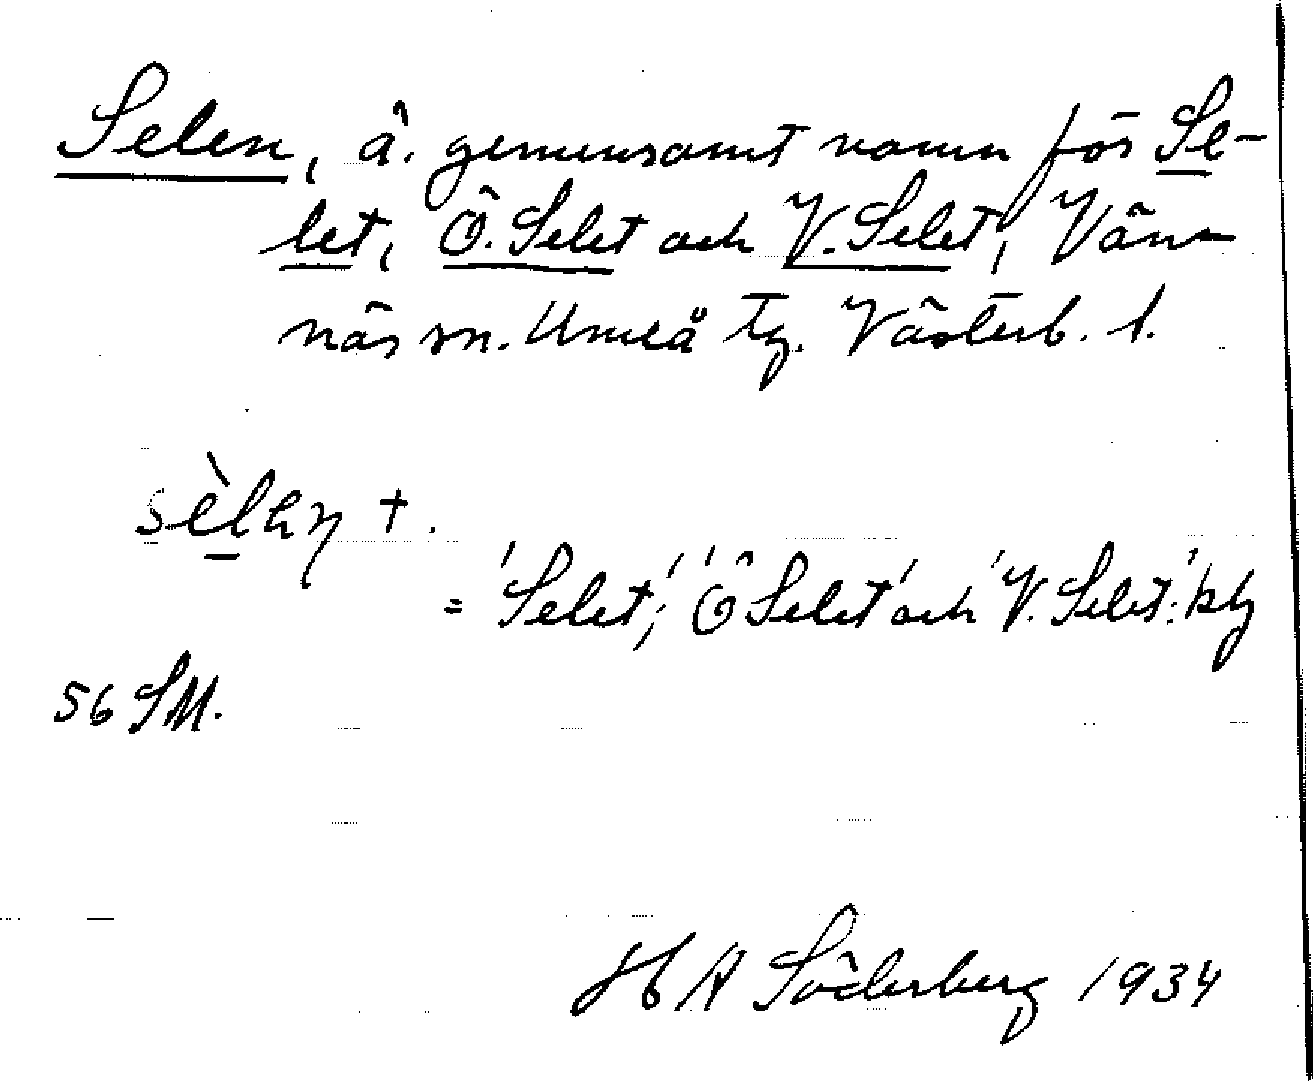 Selen, å. gemensamt namn för Se-
let, Ö. Selet och V. Selet, Vän-
näs sn. Umeå tg. Västerb. l.
sèlen +.
= 'Selet', 'Ö Selet' och 'V. Selet.'
56 SM.
H A Söderberg 1934